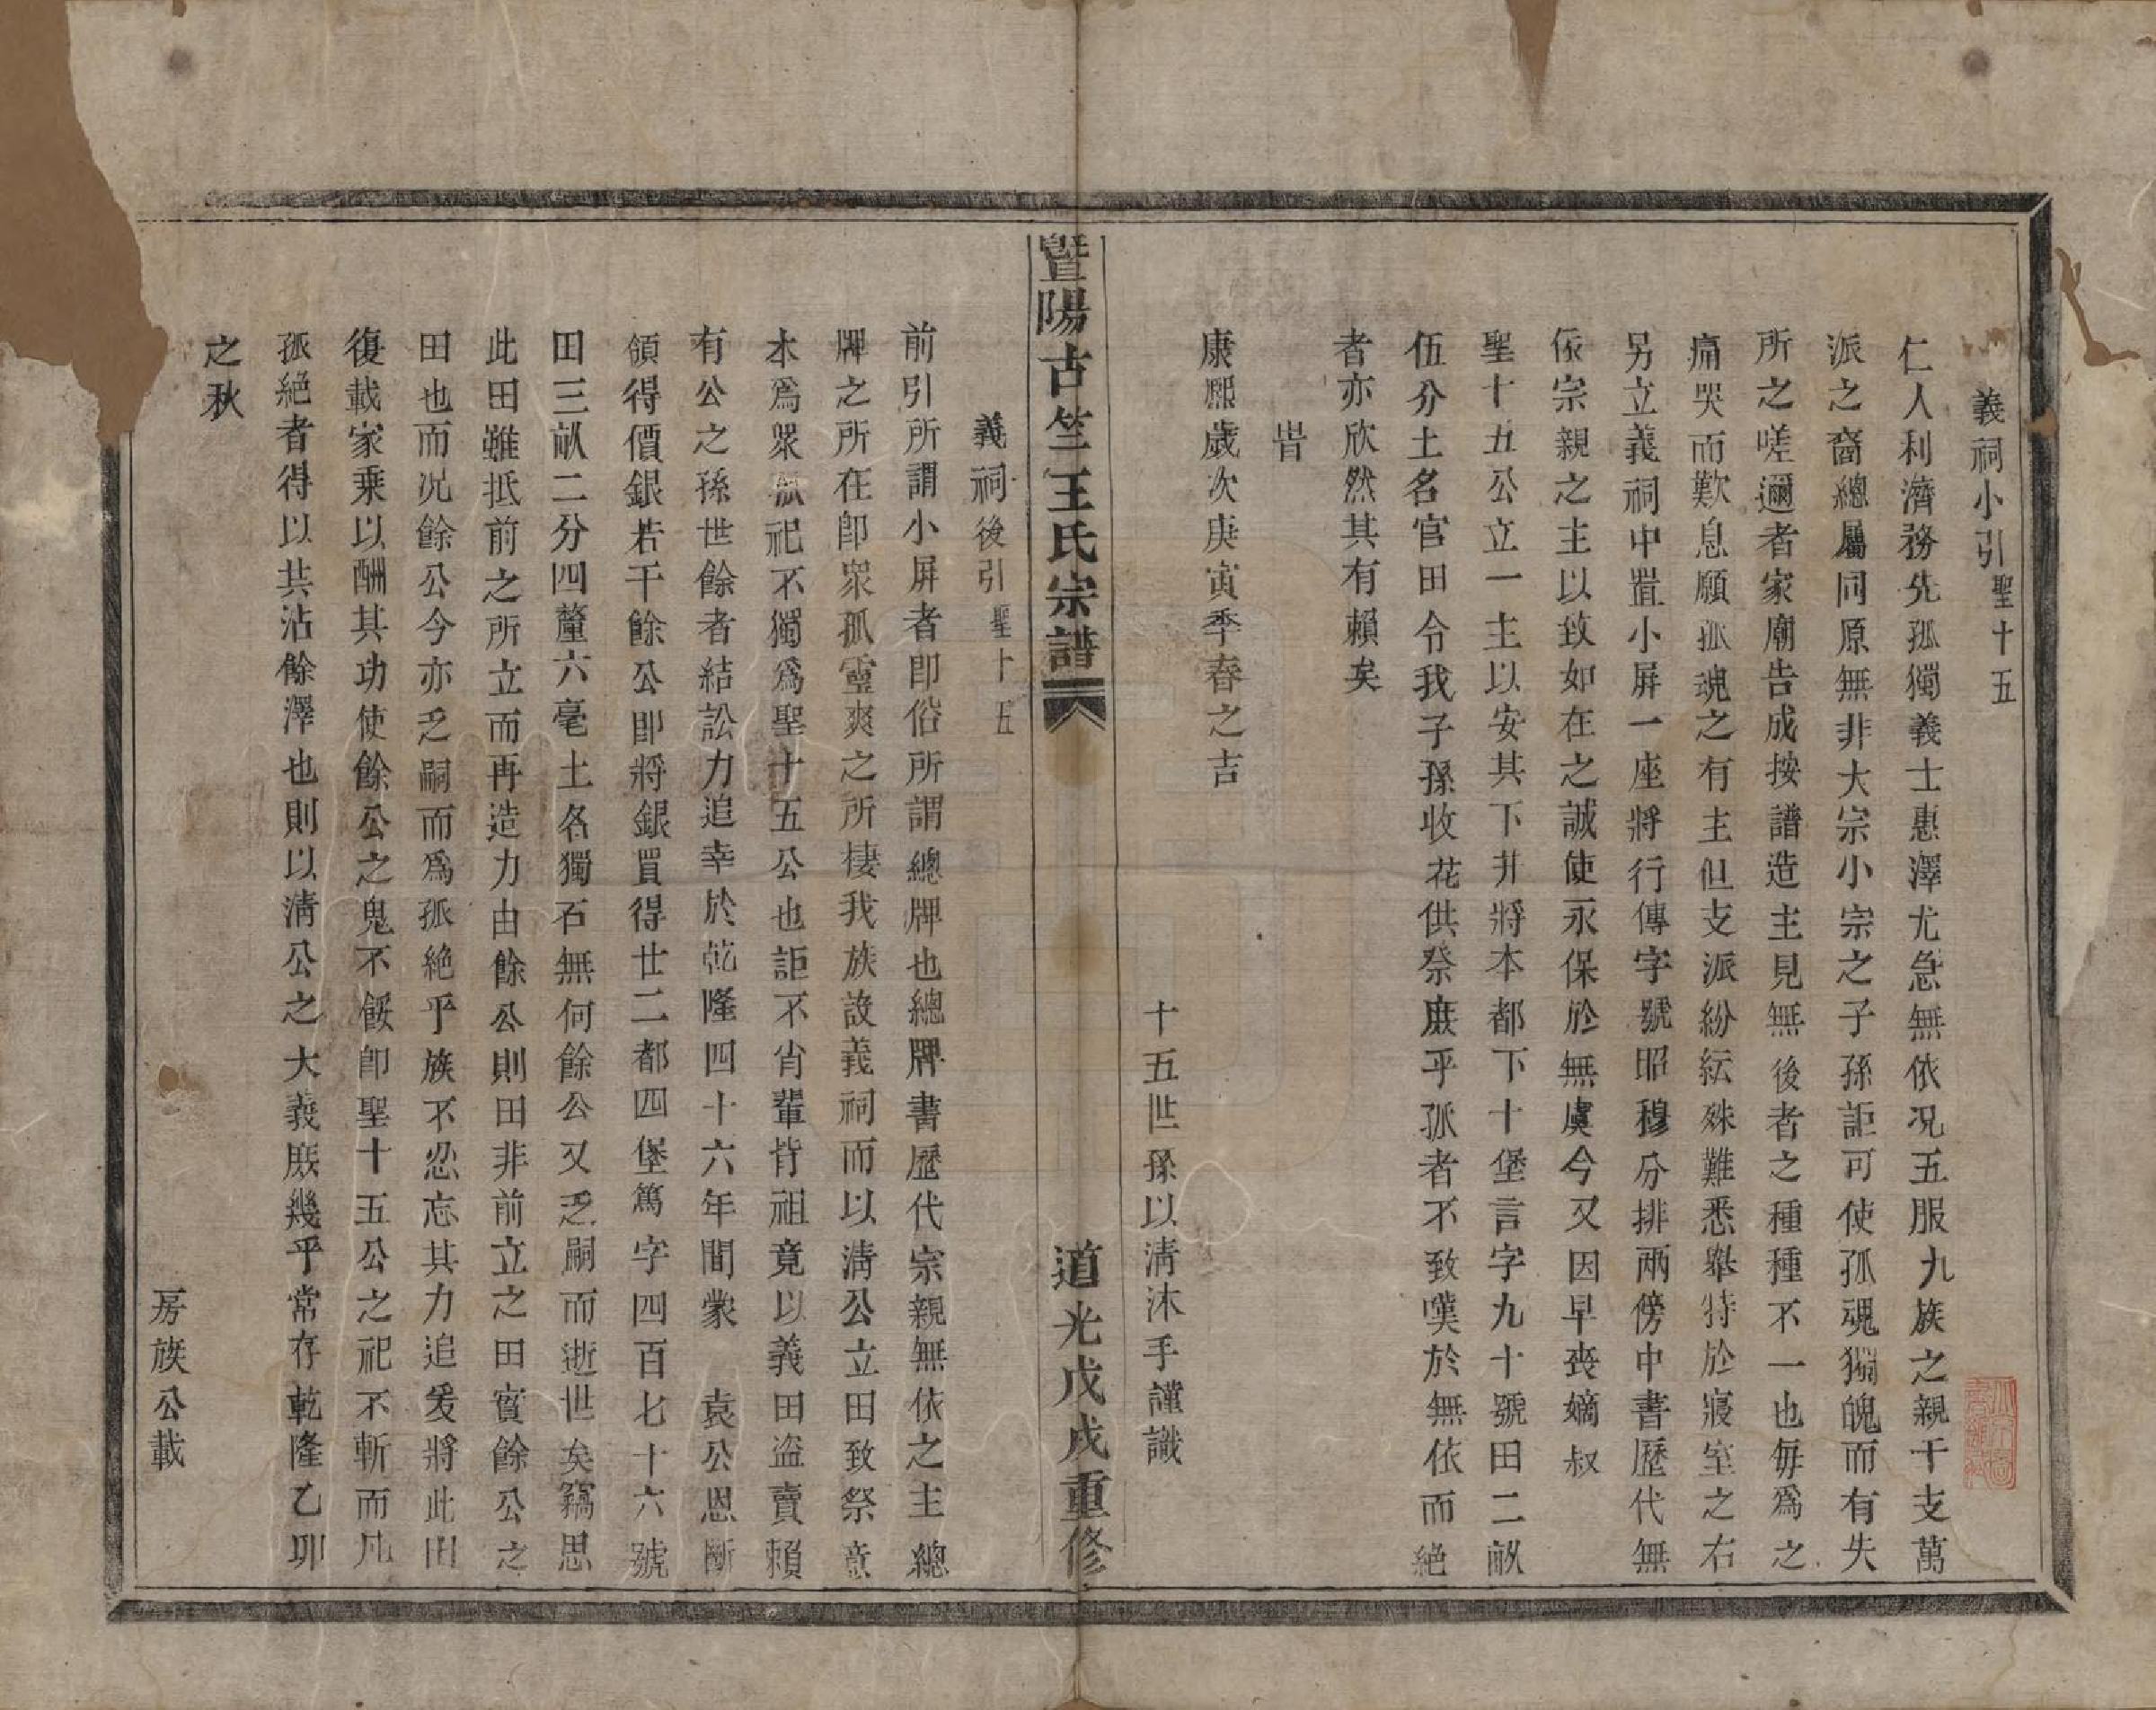 義祠小引聖十五
仁人利濟務先孤獨義士惠澤尤急無依况五服九族之親干支萬
派之裔總屬同原無非大宗小宗之子孫詎可使孤魂獨魄而有失
所之嗟邇者家廟告成按譜造主見無後者之種種不一也每爲之
痛哭而歎息願孤魂之有主但支派紛紜殊難悉舉特於寢室之右
另立義祠中置小屏一座將行傳字號昭穆分排兩傍中書歷代無
依宗親之主以致如在之誠使永保於無虞今又因早喪嫡叔
聖十五公立一主以安其下并將本都下十堡言字九十號田二畝
伍分土名官田令我子孫收花供祭庶乎孤者不致嘆於無依而絕
者亦欣然其有賴矣
旹
康熙歲次庚寅季春之吉
十五世孫以淸沐手謹識
暨陽古竺王氏宗譜
道光戊戌重修
義祠後引聖十五
前引所謂小屏者卽俗所謂總牌也總牌書歷代宗親無依之主總
牌之所在卽衆孤靈爽之所棲我族設義祠而以淸公立田致祭意
本爲衆孤祀不獨爲聖十五公也詎不肖輩背祖竟以義田盜賣賴
有公之孫世餘者結訟力追幸於乾隆四十六年間蒙　袁公恩斷
領得價銀若干餘公卽將銀買得廿二都四堡篤字四百七十六號
田三畝二分四釐六毫土名獨石無何餘公又乏嗣而逝世矣竊思
此田雖抵前之所立而再造力由餘公則田非前立之田實餘公之
田也而况餘公今亦乏嗣而爲孤絕乎族不忍忘其力追爰將此田
復載家乗以酬其功使餘公之鬼不餒卽聖十五公之祀不斬而凡
孤絕者得以共沾餘澤也則以淸公之大義庶幾乎常存乾隆乙卯
之秋
房族公載